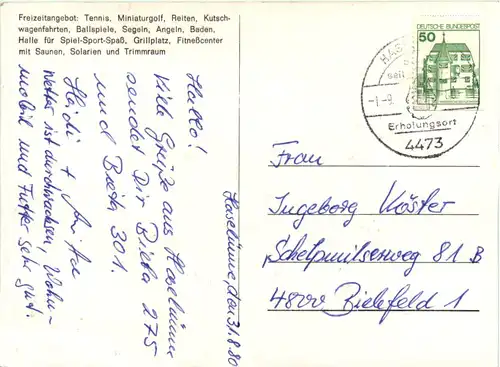 Freizeitangebot: Tennis, Miniaturgolf, Reiten, Kutsch-
wagenfahrten, Ballspiele, Segeln, Angeln, Baden,
Halle für Spiel-Sport-Spaß, Grillplatz, Fitneßcenter
mit Saunen, Solarien und Trimmraum
Haselünne, den 31.8.80
Hallo!
Viele Grüße aus Haselünne
sendet Dir Bieta 275
und Bieta 301.
Heidi +
Wetter ist durchwachsen, Wohn-
mobil und Futter sehr gut.
DEUTSCHE BUNDESPOST
50
HAS
seit
-1.-9
Erholungsort
4473
Frau
Ingeborg Köster
81 B
4800 Bielefeld 1